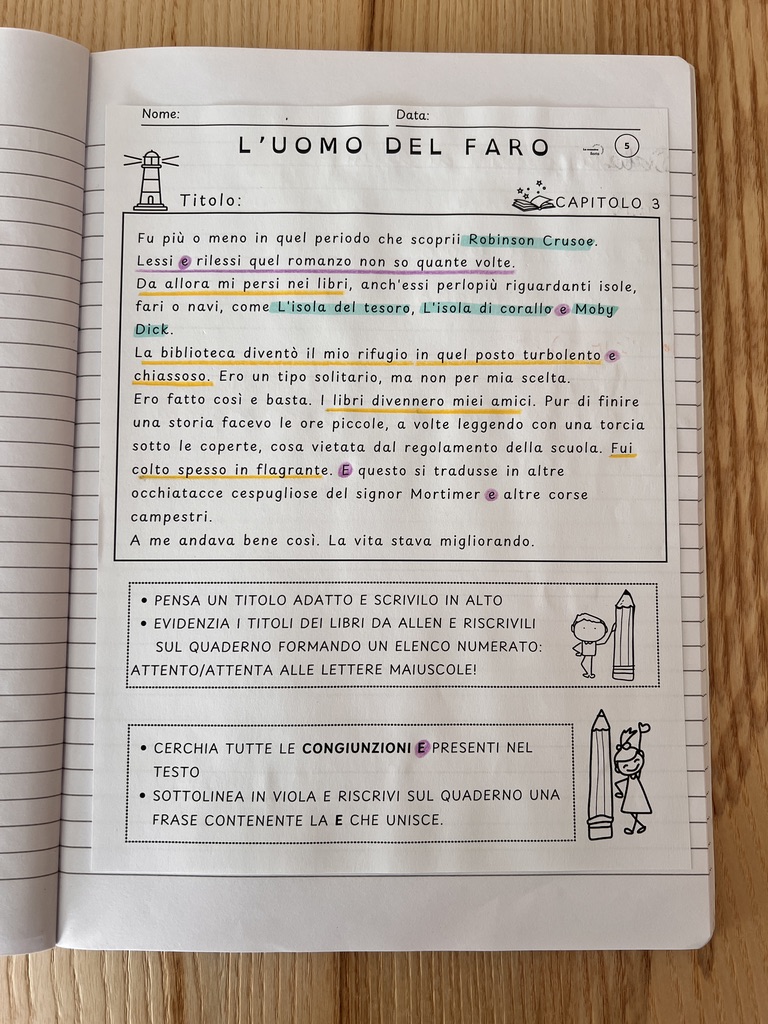 Nome:
Data:
L'UOMO DEL FARO
5
Titolo:
CAPITOLO 3
Fu più o meno in quel periodo che scoprii Robinson Crusoe.
Lessi e rilessi quel romanzo non so quante volte.
Da allora mi persi nei libri, anch'essi perlopiù riguardanti isole,
fari o navi, come L'isola del tesoro, L'isola di corallo e Moby
Dick.
La biblioteca diventò il mio rifugio in quel posto turbolento e
chiassoso. Ero un tipo solitario, ma non per mia scelta.
Ero fatto così e basta. I libri divennero miei amici. Pur di finire
una storia facevo le ore piccole, a volte leggendo con una torcia
sotto le coperte, cosa vietata dal regolamento della scuola. Fui
colto spesso in flagrante. E questo si tradusse in altre
occhiatacce cespugliose del signor Mortimer e altre corse
campestri.
A me andava bene così. La vita stava migliorando.
• PENSA UN TITOLO ADATTO E SCRIVILO IN ALTO
• EVIDENZIA I TITOLI DEI LIBRI DA ALLEN E RISCRIVILI
SUL QUADERNO FORMANDO UN ELENCO NUMERATO:
ATTENTO/ATTENTA ALLE LETTERE MAIUSCOLE!
• CERCHIA TUTTE LE CONGIUNZIONI E PRESENTI NEL
TESTO
• SOTTOLINEA IN VIOLA E RISCRIVI SUL QUADERNO UNA
FRASE CONTENENTE LA E CHE UNISCE.